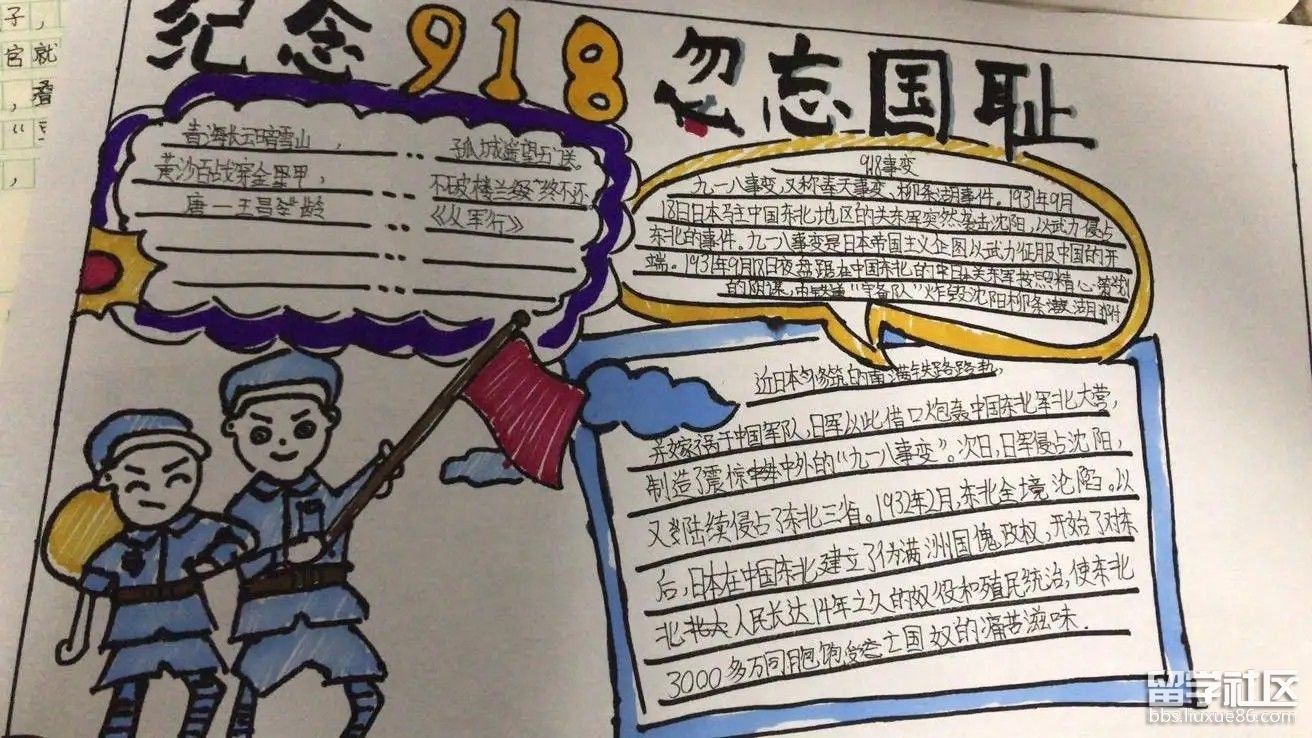 纪念918 勿忘国耻
青海长云暗雪山， 孤城遥望玉门关。
黄沙百战穿金甲， 不破楼兰终不还
唐一王昌龄 《从军行》
918事变
九一八事变，又称奉天事变、柳条湖事件。1931年9月
18日日本驻中国东北地区的关东军突然袭击沈阳，以武力侵占
东北的事件。九一八事变是日本帝国主义企图以武力征服中国的开
端。1931年9月18日夜盘踞在中国东北的日本关东军按照精心策划
的阴谋，由铁道“守备队”炸毁沈阳柳条湖附
近日本修筑的南满铁路路轨，
并嫁祸于中国军队，日军以此借口炮轰中国东北军北大营，
制造了震惊中外的“九一八事变”。次日，日军侵占沈阳，
又陆续侵占了东北三省。1932年2月，东北全境沦陷。以
后，日本在中国东北建立了伪满洲国傀政权，开始了对东
北人民长达14年之久的奴役和殖民统治，使东北
3000多万同胞饱受亡国奴的痛苦滋味.
子，
官就
，
“
，
留学社区
bbs.liuxue86.com